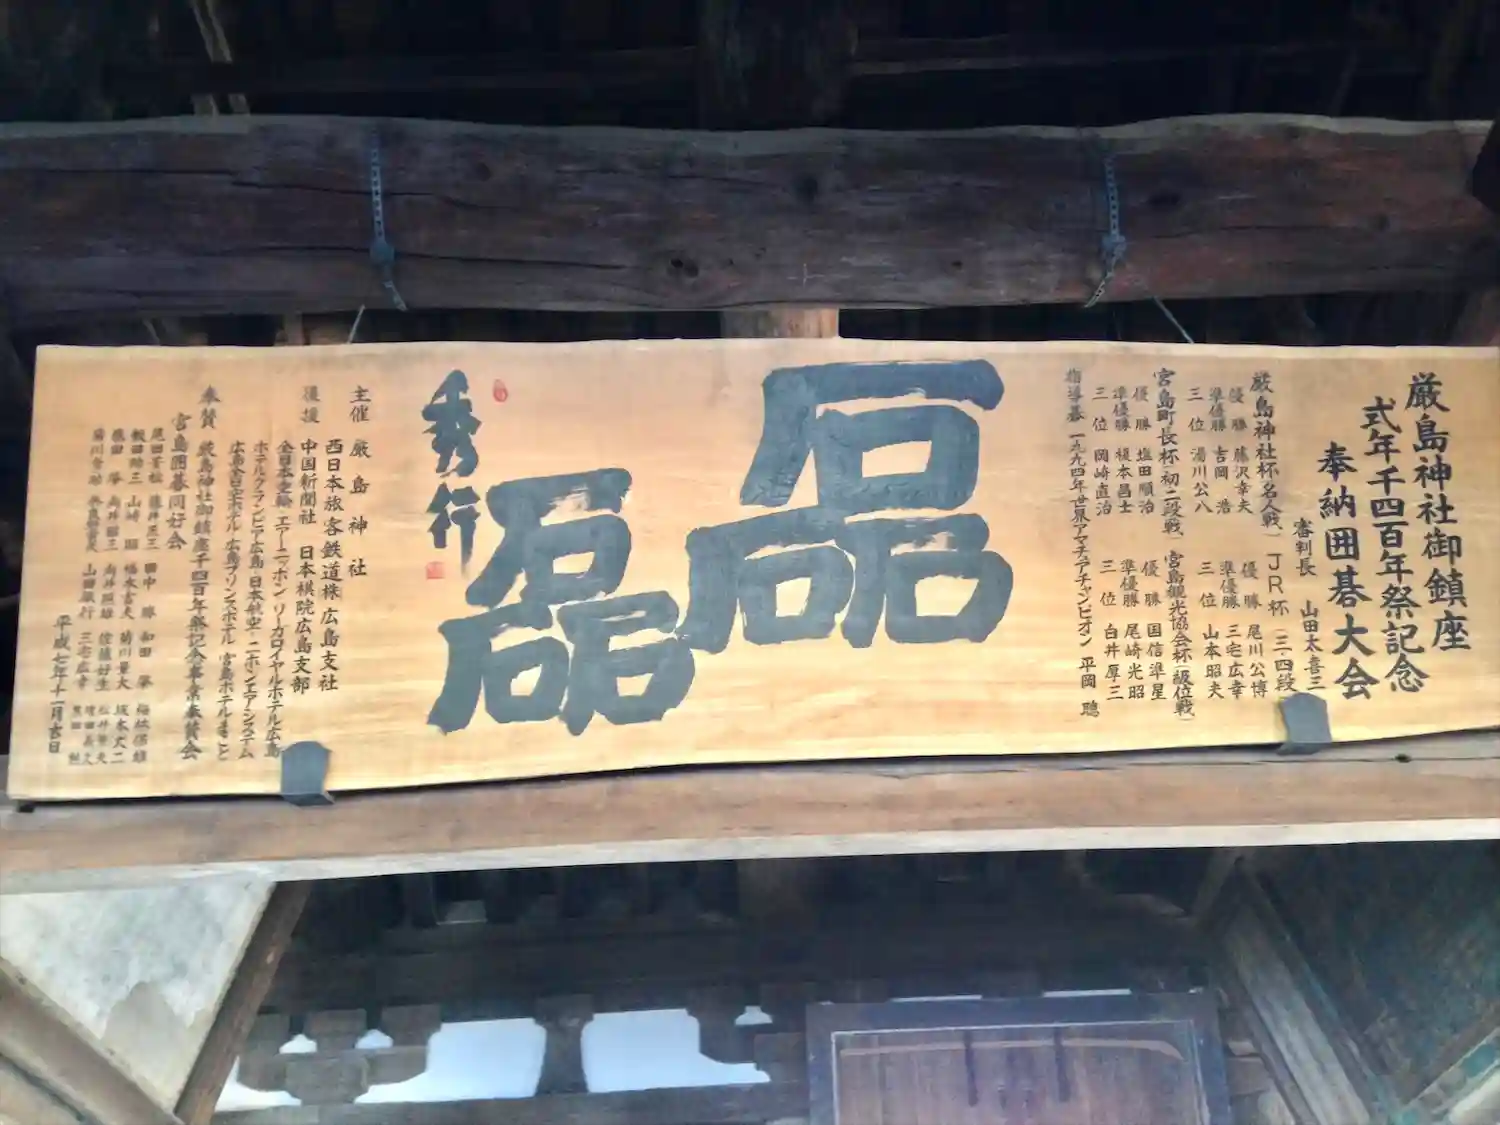 厳島神社御鎮座
式年千四百年祭記念
奉納囲碁大会
審判長 山田太喜三
厳島神社杯(名人戦) JR杯(三・四段)
優勝 藤沢幸夫 優勝 尾川公博
準優勝 吉岡浩 準優勝 三宅広幸
三位 湯川公八 三位 山本昭夫
宮島町長杯(初・二段戦) 宮島観光協会杯(級位戦)
優勝 塩田順治 優勝 国信準星
準優勝 榎本昌士 準優勝 尾崎光昭
三位 岡崎直治 三位 白井厚三
指導碁 一九九四年世界アマチュアチャンピオン 平岡聰
磊
磊
秀行
主催 厳島神社
西日本旅客鉄道株広島支社
後援 中国新聞社 日本棋院広島支部
全日本空輸・エアーニッポン・リーガロイヤルホテル広島
ホテルグランビア広島・日本航空・ニホンエアシステム
広島全日空ホテル・広島プリンスホテル・宮島ホテルまこと
奉賛 厳島神社御鎮座千四百年祭記念事業奉賛会
宮島囲碁同好会
田中勝 和田肇
山崎 菊川量大 坂木丈二
藤田肇 向井照雄 佐藤好生 松井
山田銀行 三宅広幸
平成七年十一月吉日